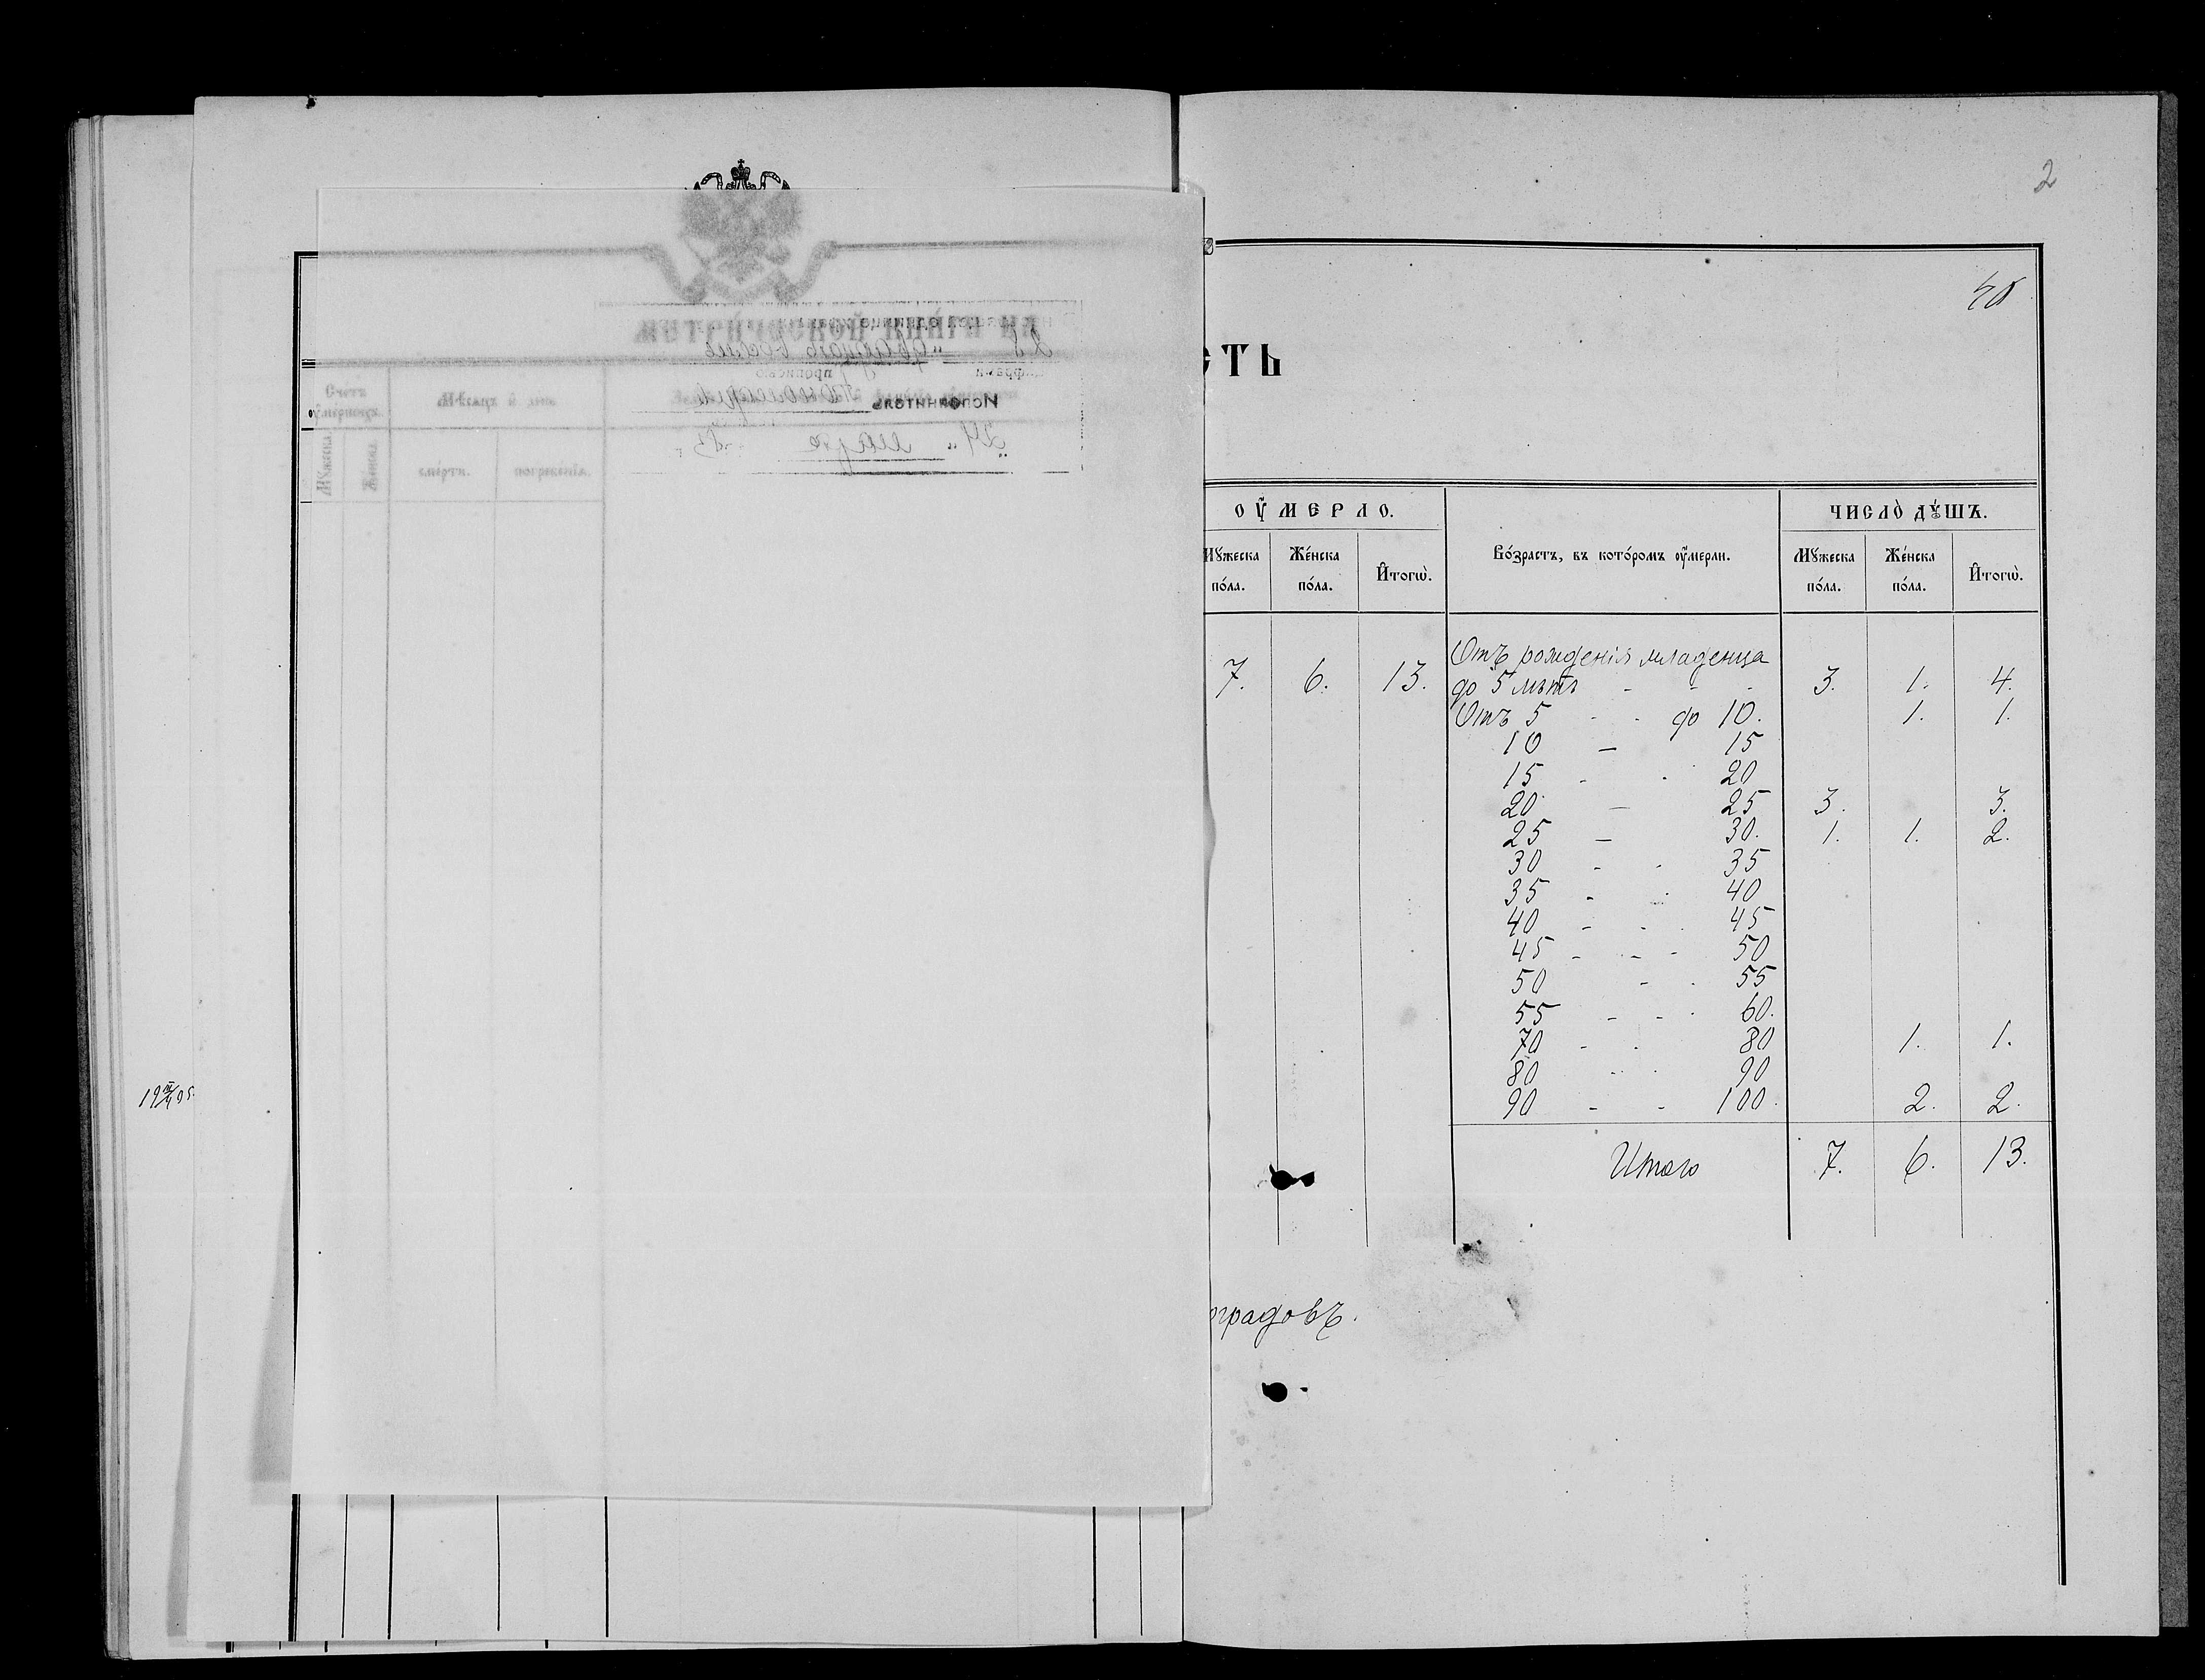 2
СТЬ
ОУМЕРЛО.
ЧИСЛО ДУШЪ.
Мужеска пола.
Женска пола.
Итогѡ.
Возрастъ, въ которомъ оумерли.
Мужеска пола.
Женска пола.
Итогѡ.
Отъ рожденія младенца
7. 6. 13. до 5 лѣтъ - - - 3. 1. 4.
Отъ 5 - - до 10. 1. 1.
10 — 15
15 - - 20
20 — 25 3. 3.
25 — 30. 1. 1. 2.
30 - - 35
35 - - 40
40 - - 45
45 - - - 50
50 - - 55
55 - - - 60.
70 - - 80 1. 1.
80 - - 90
90 - - 100. 2. 2.
Итого 7. 6. 13.
оградовъ.
Счетъ оумершихъ.
Мѣсяцъ и дни
Мужеска
Женска
смерти.
погребенія.